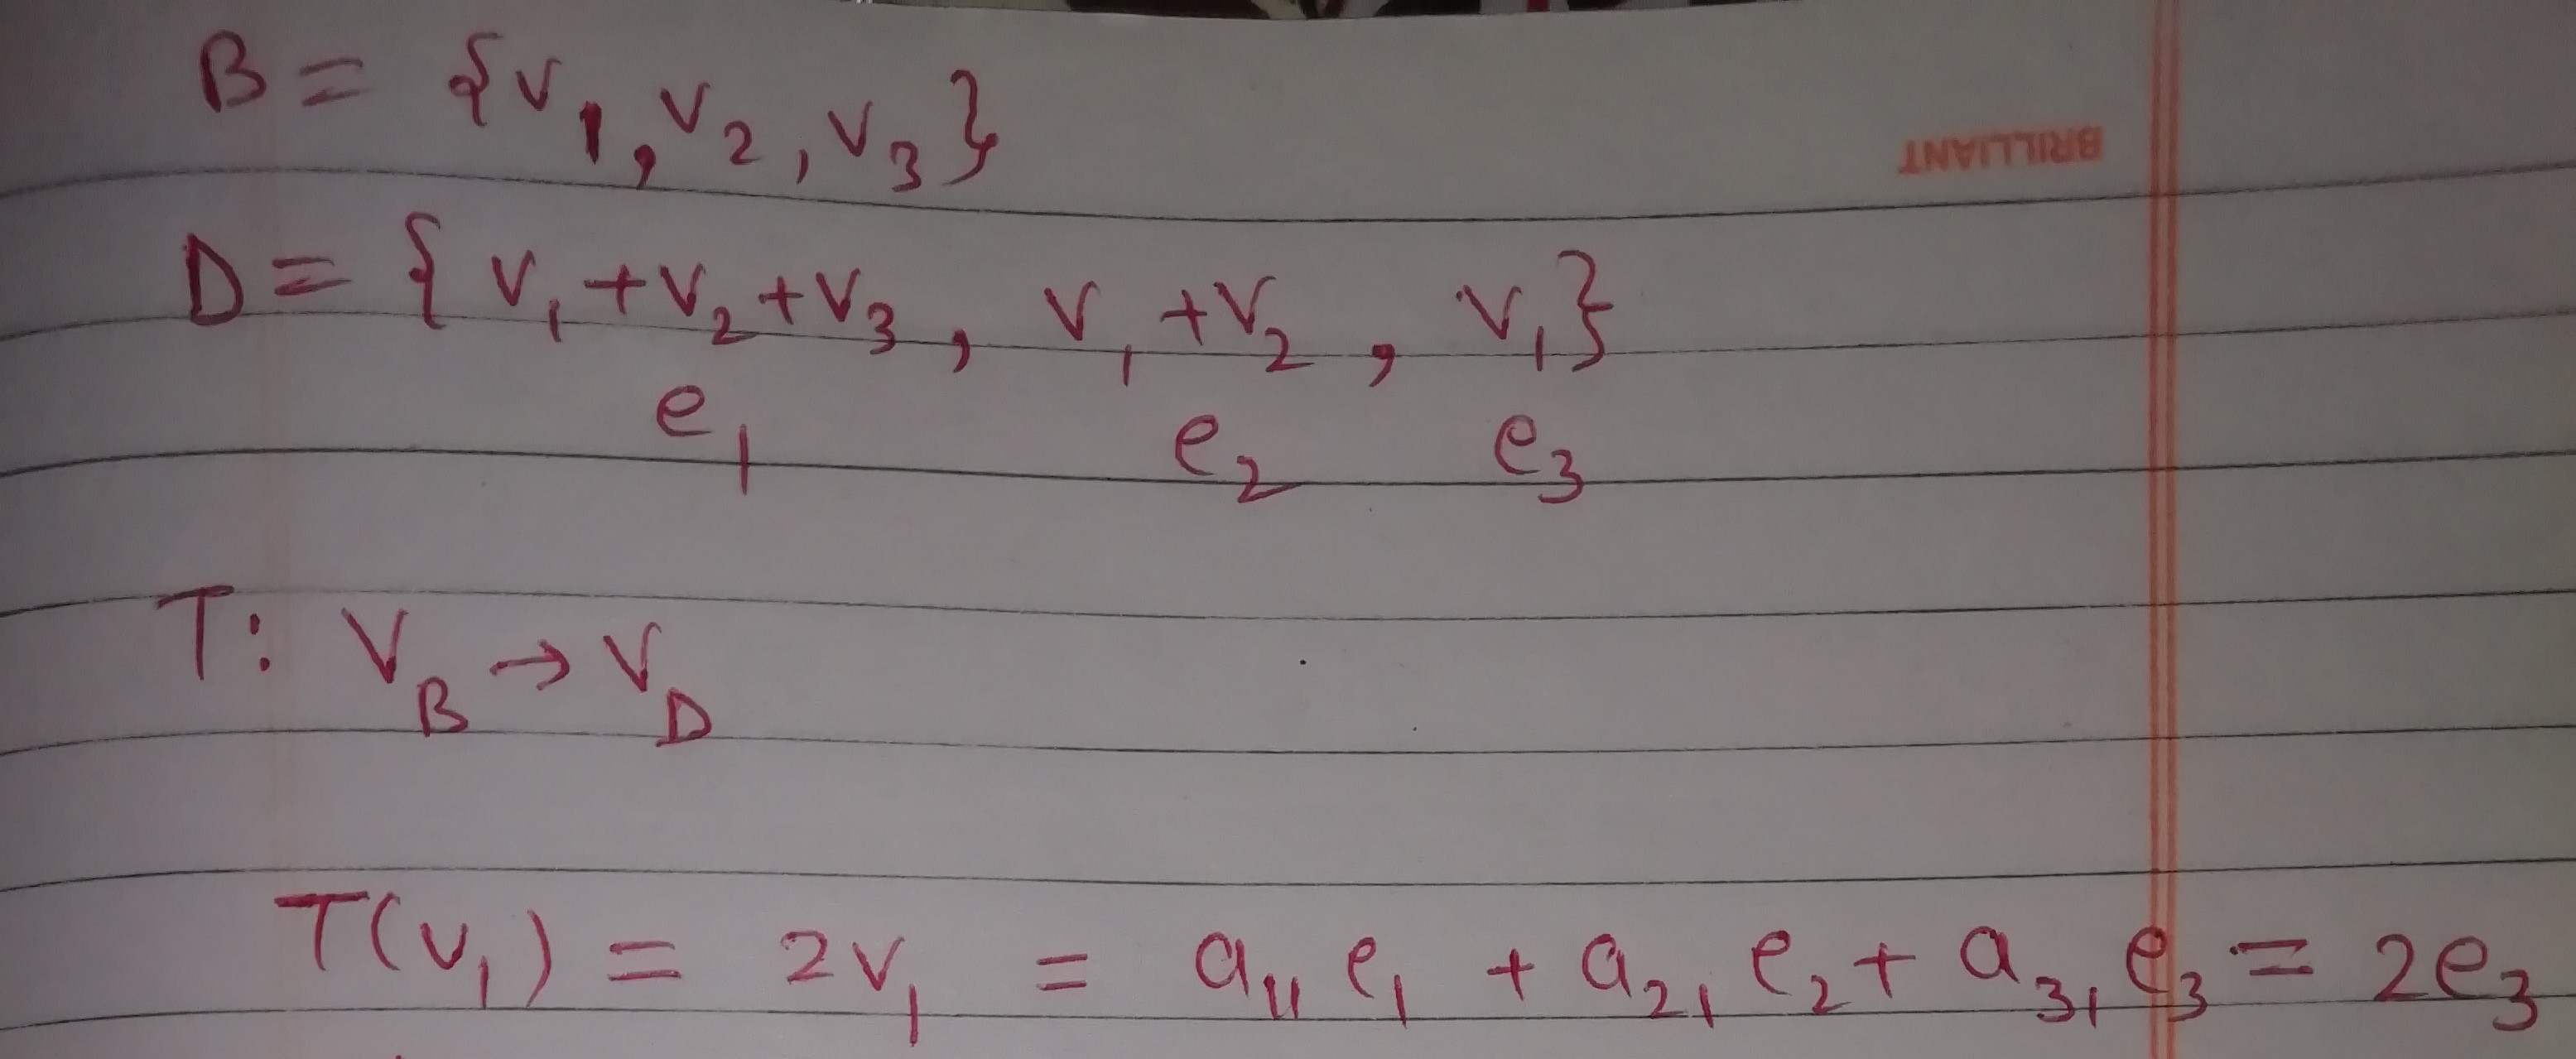 B = {v₁, v₂, v₃}
BRILLIANT
D = {v₁+v₂+v₃, v₁+v₂, v₁}
e₁ e₂ e₃
T: V_B → V_D
T(v₁) = 2v₁ = a₁₁e₁ + a₂₁e₂ + a₃₁e₃ = 2e₃